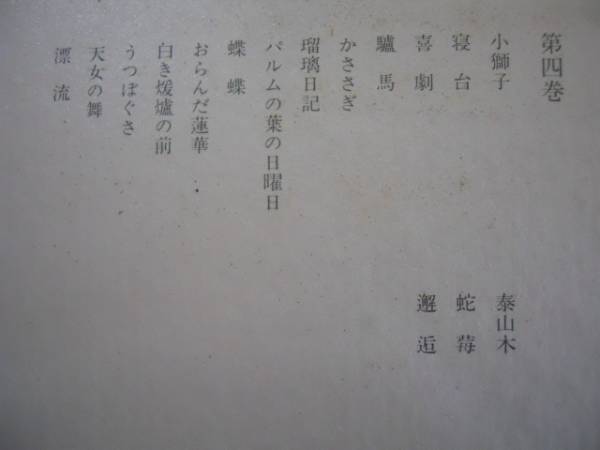 第四巻
小獅子
寝台
喜劇
驢馬
かささぎ
瑠璃日記
パルムの葉の日曜日
蝶蝶
おらんだ蓮華
白き煖爐の前
うつぼぐさ
天女の舞
漂流
泰山木
蛇莓
邂逅